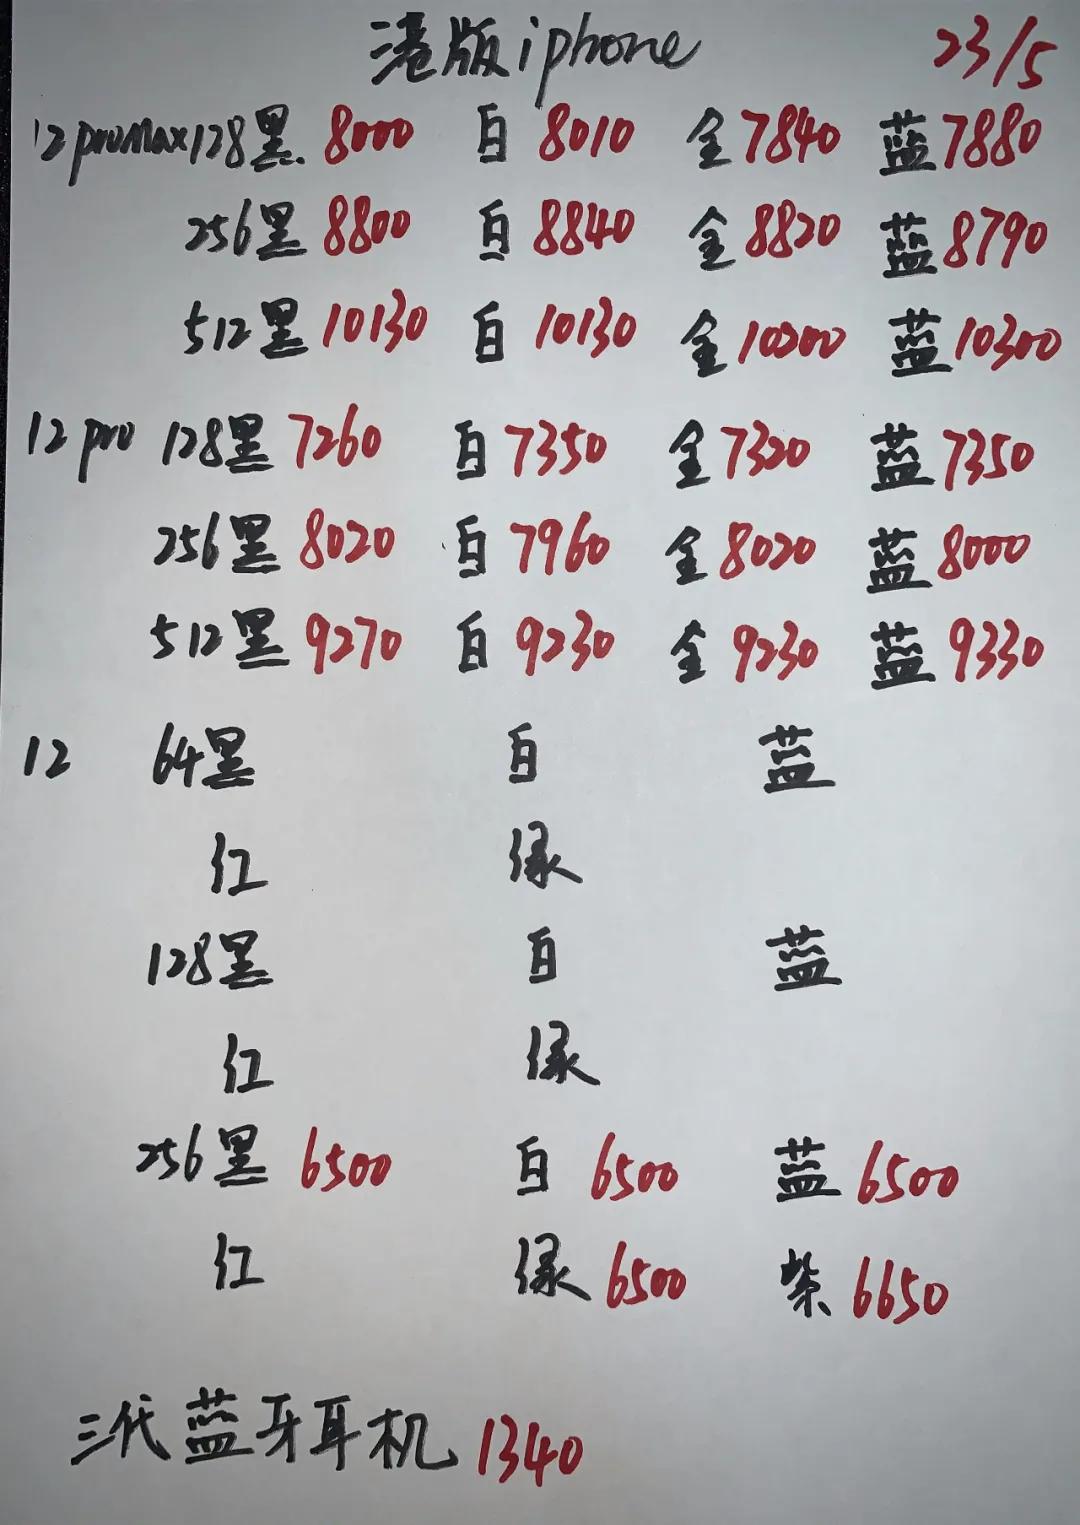 港版iphone 23/5
12promax128黑 8000 白 8010 金 7840 蓝 7880
256黑 8800 白 8840 金 8820 蓝 8790
512黑 10130 白 10130 金 10200 蓝 10300
12pro 128黑 7260 白 7350 金 7320 蓝 7350
256黑 8020 白 7960 金 8020 蓝 8000
512黑 9270 白 9230 金 9230 蓝 9330
12 64黑 白 蓝
红 绿
128黑 白 蓝
红 绿
256黑 6500 白 6500 蓝 6500
红 绿 6500 紫 6650
三代蓝牙耳机 1340